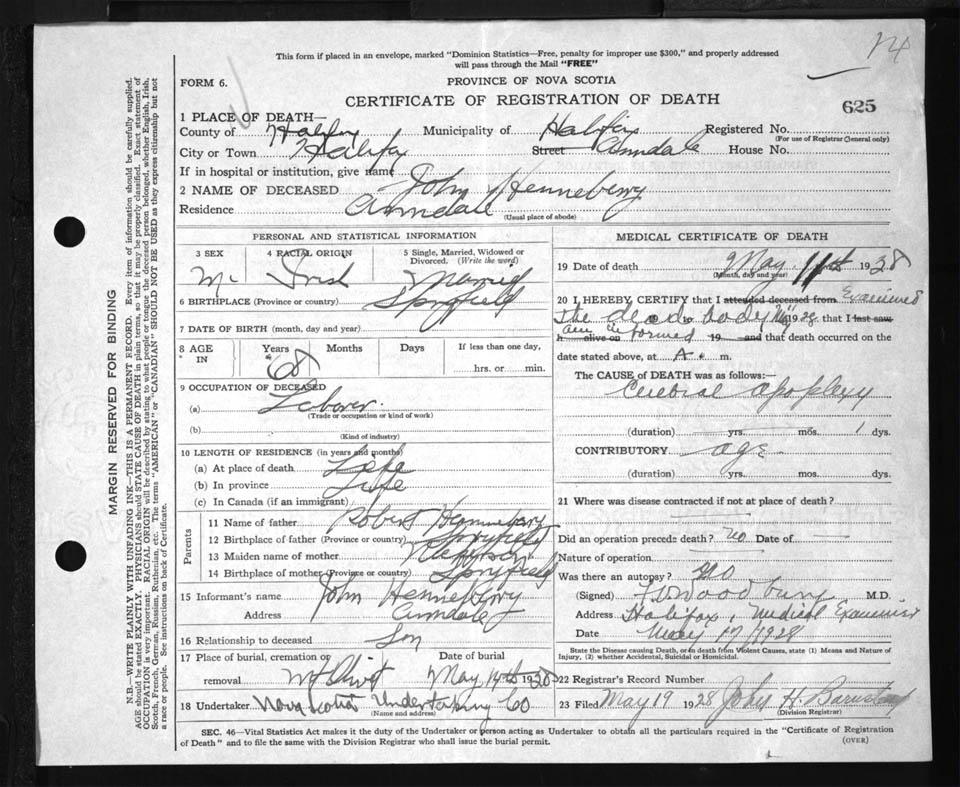 This form if placed in an envelope, marked "Dominion Statistics—Free, penalty for improper use $300," and properly addressed
will pass through the Mail "FREE"
FORM 6.
PROVINCE OF NOVA SCOTIA
CERTIFICATE OF REGISTRATION OF DEATH
625
1 PLACE OF DEATH—
County of Halifax Municipality of Halifax Registered No.
(For use of Registrar General only)
City or Town Halifax Street Armdale House No.
If in hospital or institution, give name
2 NAME OF DECEASED John Henneberry
Residence Armdale
(Usual place of abode)
PERSONAL AND STATISTICAL INFORMATION
3 SEX M 4 RACIAL ORIGIN Irish 5 Single, Married, Widowed or Divorced. (Write the word) Married
6 BIRTHPLACE (Province or country) Spryfield
7 DATE OF BIRTH (month, day and year)
8 AGE IN Years 68 Months Days If less than one day, hrs. or min.
9 OCCUPATION OF DECEASED
(a) Laborer
(Trade or occupation or kind of work)
(b)
(Kind of industry)
10 LENGTH OF RESIDENCE (in years and months)
(a) At place of death Life
(b) In province Life
(c) In Canada (if an immigrant)
Parents
11 Name of father Robert Henneberry
12 Birthplace of father (Province or country) Spryfield
13 Maiden name of mother
14 Birthplace of mother (Province or country) Spryfield
15 Informant's name John Henneberry
Address Armdale
16 Relationship to deceased Son
17 Place of burial, cremation or removal Mt Olivet Date of burial May 14th 1928
18 Undertaker Nova Scotia Undertaking Co
(Name and address)
MEDICAL CERTIFICATE OF DEATH
19 Date of death May 11th 1928
(Month, day and year)
20 I HEREBY CERTIFY that I attended deceased from Examined
the dead body May 1928 that I last saw
h alive on am informed 19 and that death occurred on
date stated above, at A. m.
The CAUSE of DEATH was as follows:—
Cerebral apoplexy
(duration) yrs. mos. 1 dys.
CONTRIBUTORY age
(duration) yrs. mos. dys.
21 Where was disease contracted if not at place of death?
Did an operation precede death? no Date of
Nature of operation
Was there an autopsy? no
(Signed) Woodbury M.D.
Address Halifax, Medical Examiner
Date May 17/1928
State the Disease causing Death, or in death from Violent Causes, state (1) Means and Nature of
Injury, (2) whether Accidental, Suicidal or Homicidal.
22 Registrar's Record Number
23 Filed May 19 1928 John H. Barnstead
(Division Registrar)
SEC. 46—Vital Statistics Act makes it the duty of the Undertaker or person acting as Undertaker to obtain all the particulars required in the "Certificate of Registration
of Death" and to file the same with the Division Registrar who shall issue the burial permit.
(OVER)
MARGIN RESERVED FOR BINDING
N.B.—WRITE PLAINLY WITH UNFADING INK—THIS IS A PERMANENT RECORD. Every item of information should be carefully supplied.
AGE should be stated EXACTLY. PHYSICIANS should STATE CAUSE OF DEATH in plain terms, so that it may be properly classified. Exact statement of
OCCUPATION is very important. RACIAL ORIGIN will be described by stating to what people or tongue the deceased person belonged, whether English, Irish,
Scotch, French, German, Russian, Ruthenian, etc. The terms "AMERICAN" or "CANADIAN" SHOULD NOT BE USED as they express citizenship but not
a race or people. See instructions on back of Certificate.